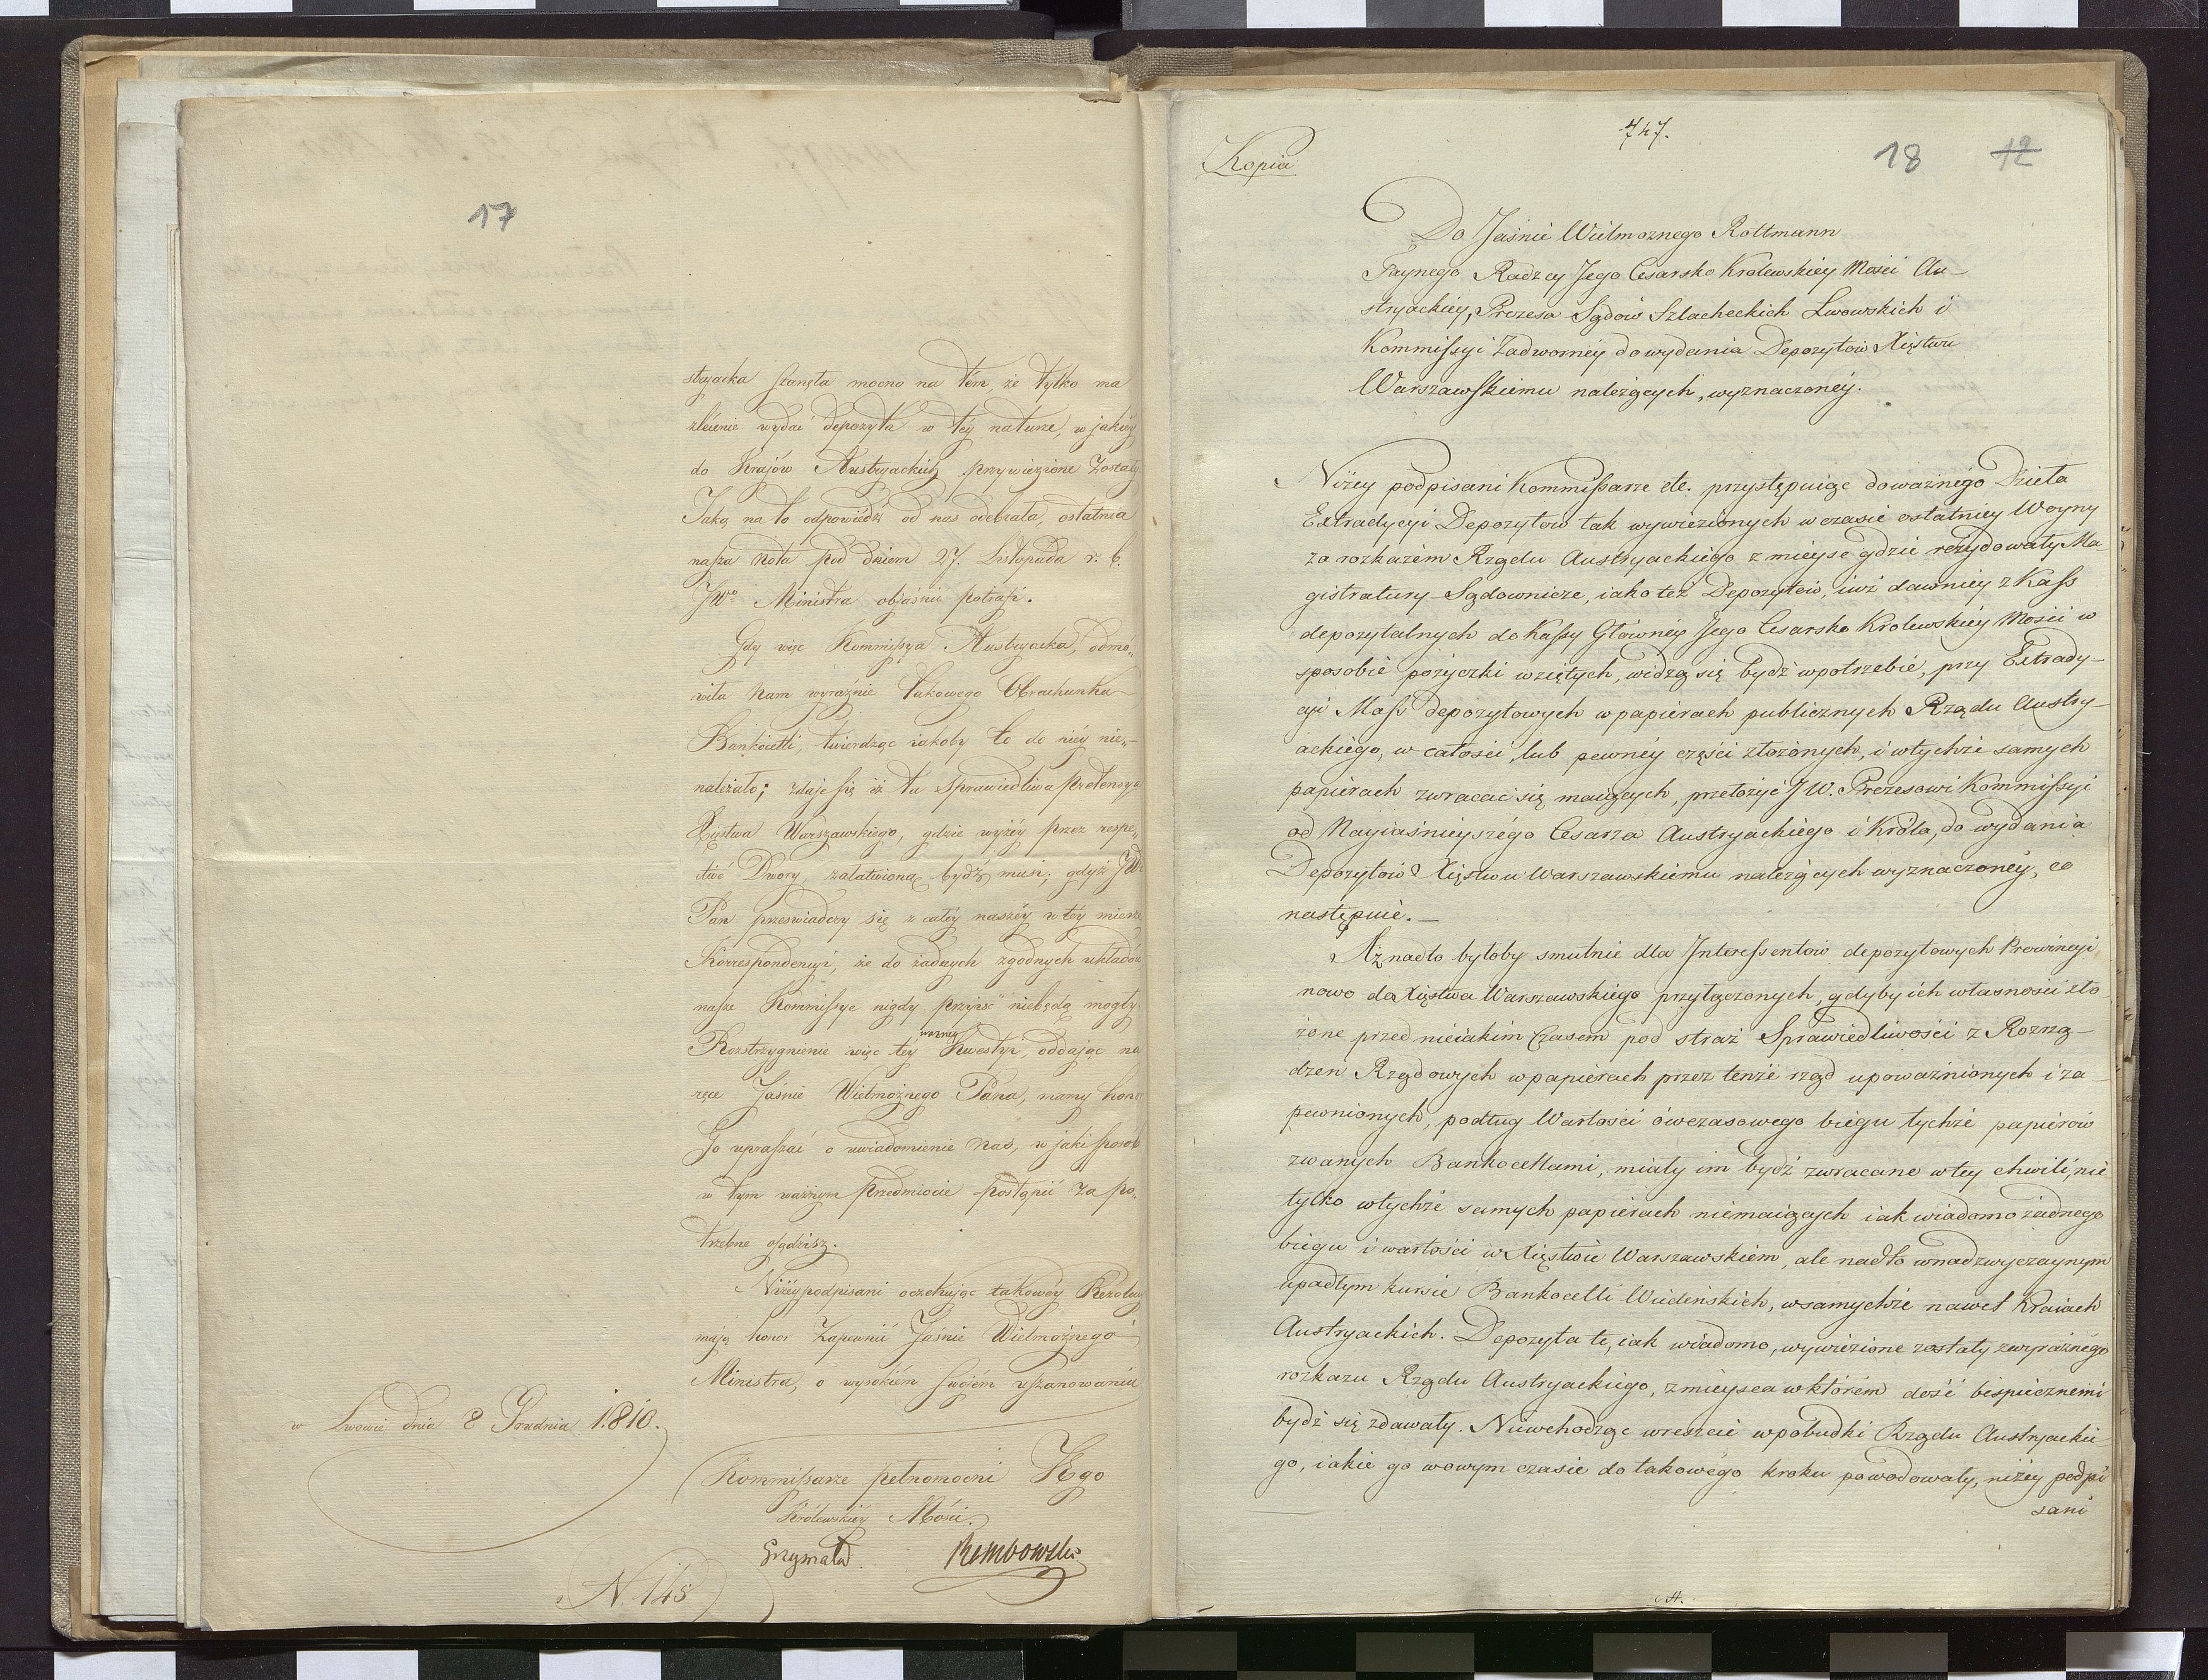 17
stryacka stanęła mocno na tém, że tylko ma
zlécenie wydać depozyta w téy naturze, w jakiéy
do Krajów Austryackich przywiezione zostały
Jaką na to odpowiédź od nas odebrała, ostatnia
nasza Nota pod dniem 27. Listopada r. b.
JWo Ministra objaśnić potrafi.
Gdy więc Kommissya Austryacka, odmó„
wiła Nam wyraźnie takowego Obrachunku
Bankocetli, twierdząc iakoby to do niéy nie„
należało; zdaje się iż ta sprawiedliwa pretensya
Xięstwa Warszawskiego, gdzie wyżéy przez respe„
ctivé Dwory, załatwioną bydź musi; gdyż JW.
Pan przeswiadczy się z całéy naszéy w téy mierze
Korrespondencyi, że do żadnych zgodnych układów
nasze Kommissye nigdy przyiść niebędą mogły.
Rozstrzygnienie więc téy ważney Kwestyi, oddając na
ręce Jaśnie Wielmożnego Pana, mamy hono
Go upraszać o uwiadomienie nas, w jaki sposób
w tym ważnym przedmiocie postąpić za po„
trzebne osądzisz.
Niżéy podpisani oczekując takowéy Rezoluc
mają honor zapewnić Jaśnie Wielmożnego
Ministra, o wysokiém swojém uszanowaniu
w Lwowie dnia 8 Grudnia 1810.
Kommissarze pełnomocni JKgo
Królewskiéy Mości.
Grzymała. Rembowski
N. 145
747.
Kopia
18 12
Do Jaśnie Wielmoznego Rottmann
Taynego Radzcy Jego Cesarsko Krolewskiey Mości Au-
stryackiéy, Prezesa Sądów Szlacheckich Lwowskich i
Kommissyi Nadwornéy do wydania Depozytów Xięstwu
Warszawskiemu należących, wyznaczonéy.
Niżey podpisani Kommissarze etc. przystępuiąc do ważnégo Dzieła
Extradycyi Depozytów tak wywiezionych w czasie ostatniey Woyny
za rozkazém Rządu Austryackiégo z mieysc gdzie rezydowały Ma-
gistratury Sądownicze, iako też Depozytów, iuż dawniey z Kass
depozytalnych do Kassy Głównéy Jego Cesarsko Krolewskiéy Mości w
sposobie pożyczki wziętych, widzą się bydź w potrzebie, przy Extrady-
cyi Mass depozytowych w papiérach publicznych Rządu Austry-
ackiégo, w całości, lub pewnéy części złożonych, i w tychże samych
papiérach zwracać się maiących, przełożyć JW. Prezesowi Kommissyi
od Nayiaśnieyszégo Cesarza Austryackiégo i Króla, do wydania
Depozytów Xięstwu Warszawskiemu należących wyznaczonéy, co
następuie.—
Aż nadto byłoby smutnie dla Interessentów depozytowych Prowincyi
nowo do Xięstwa Warszawskiégo przyłączonych, gdyby ich własności zło-
żone przed nieiakim Czasem pod straż Sprawiedliwości z Rozrzą-
dzen Rządowych w papiérach przez tenże rząd upoważnionych i za-
pewnionych, podług Wartości ówczasowego biegu tychże papiérów
zwanych Bankocetlami, miały im bydź zwracane w tey chwili, nie
tylko w tychże samych papiérach niemaiących iak wiadomo żadnego
biegu i wartości w Xięstwie Warszawskiém, ale nadto w nadzwyczaynym
upadłym kursie Bankocetli Wiédeńskich, w samychże nawet Kraiach
Austryackich. Depozyta te, iak wiadomo, wywiezione zostały z wyraźnégo
rozkazu Rządu Austryackiego, z mieysca w którém dość bespiecznemi
bydź się zdawały. Niewchodząc wreszcie w pobudki Rządu Austryackie-
go, iakie go w owym czasie do takowégo kroku powodowały, niżéy podpi
sani